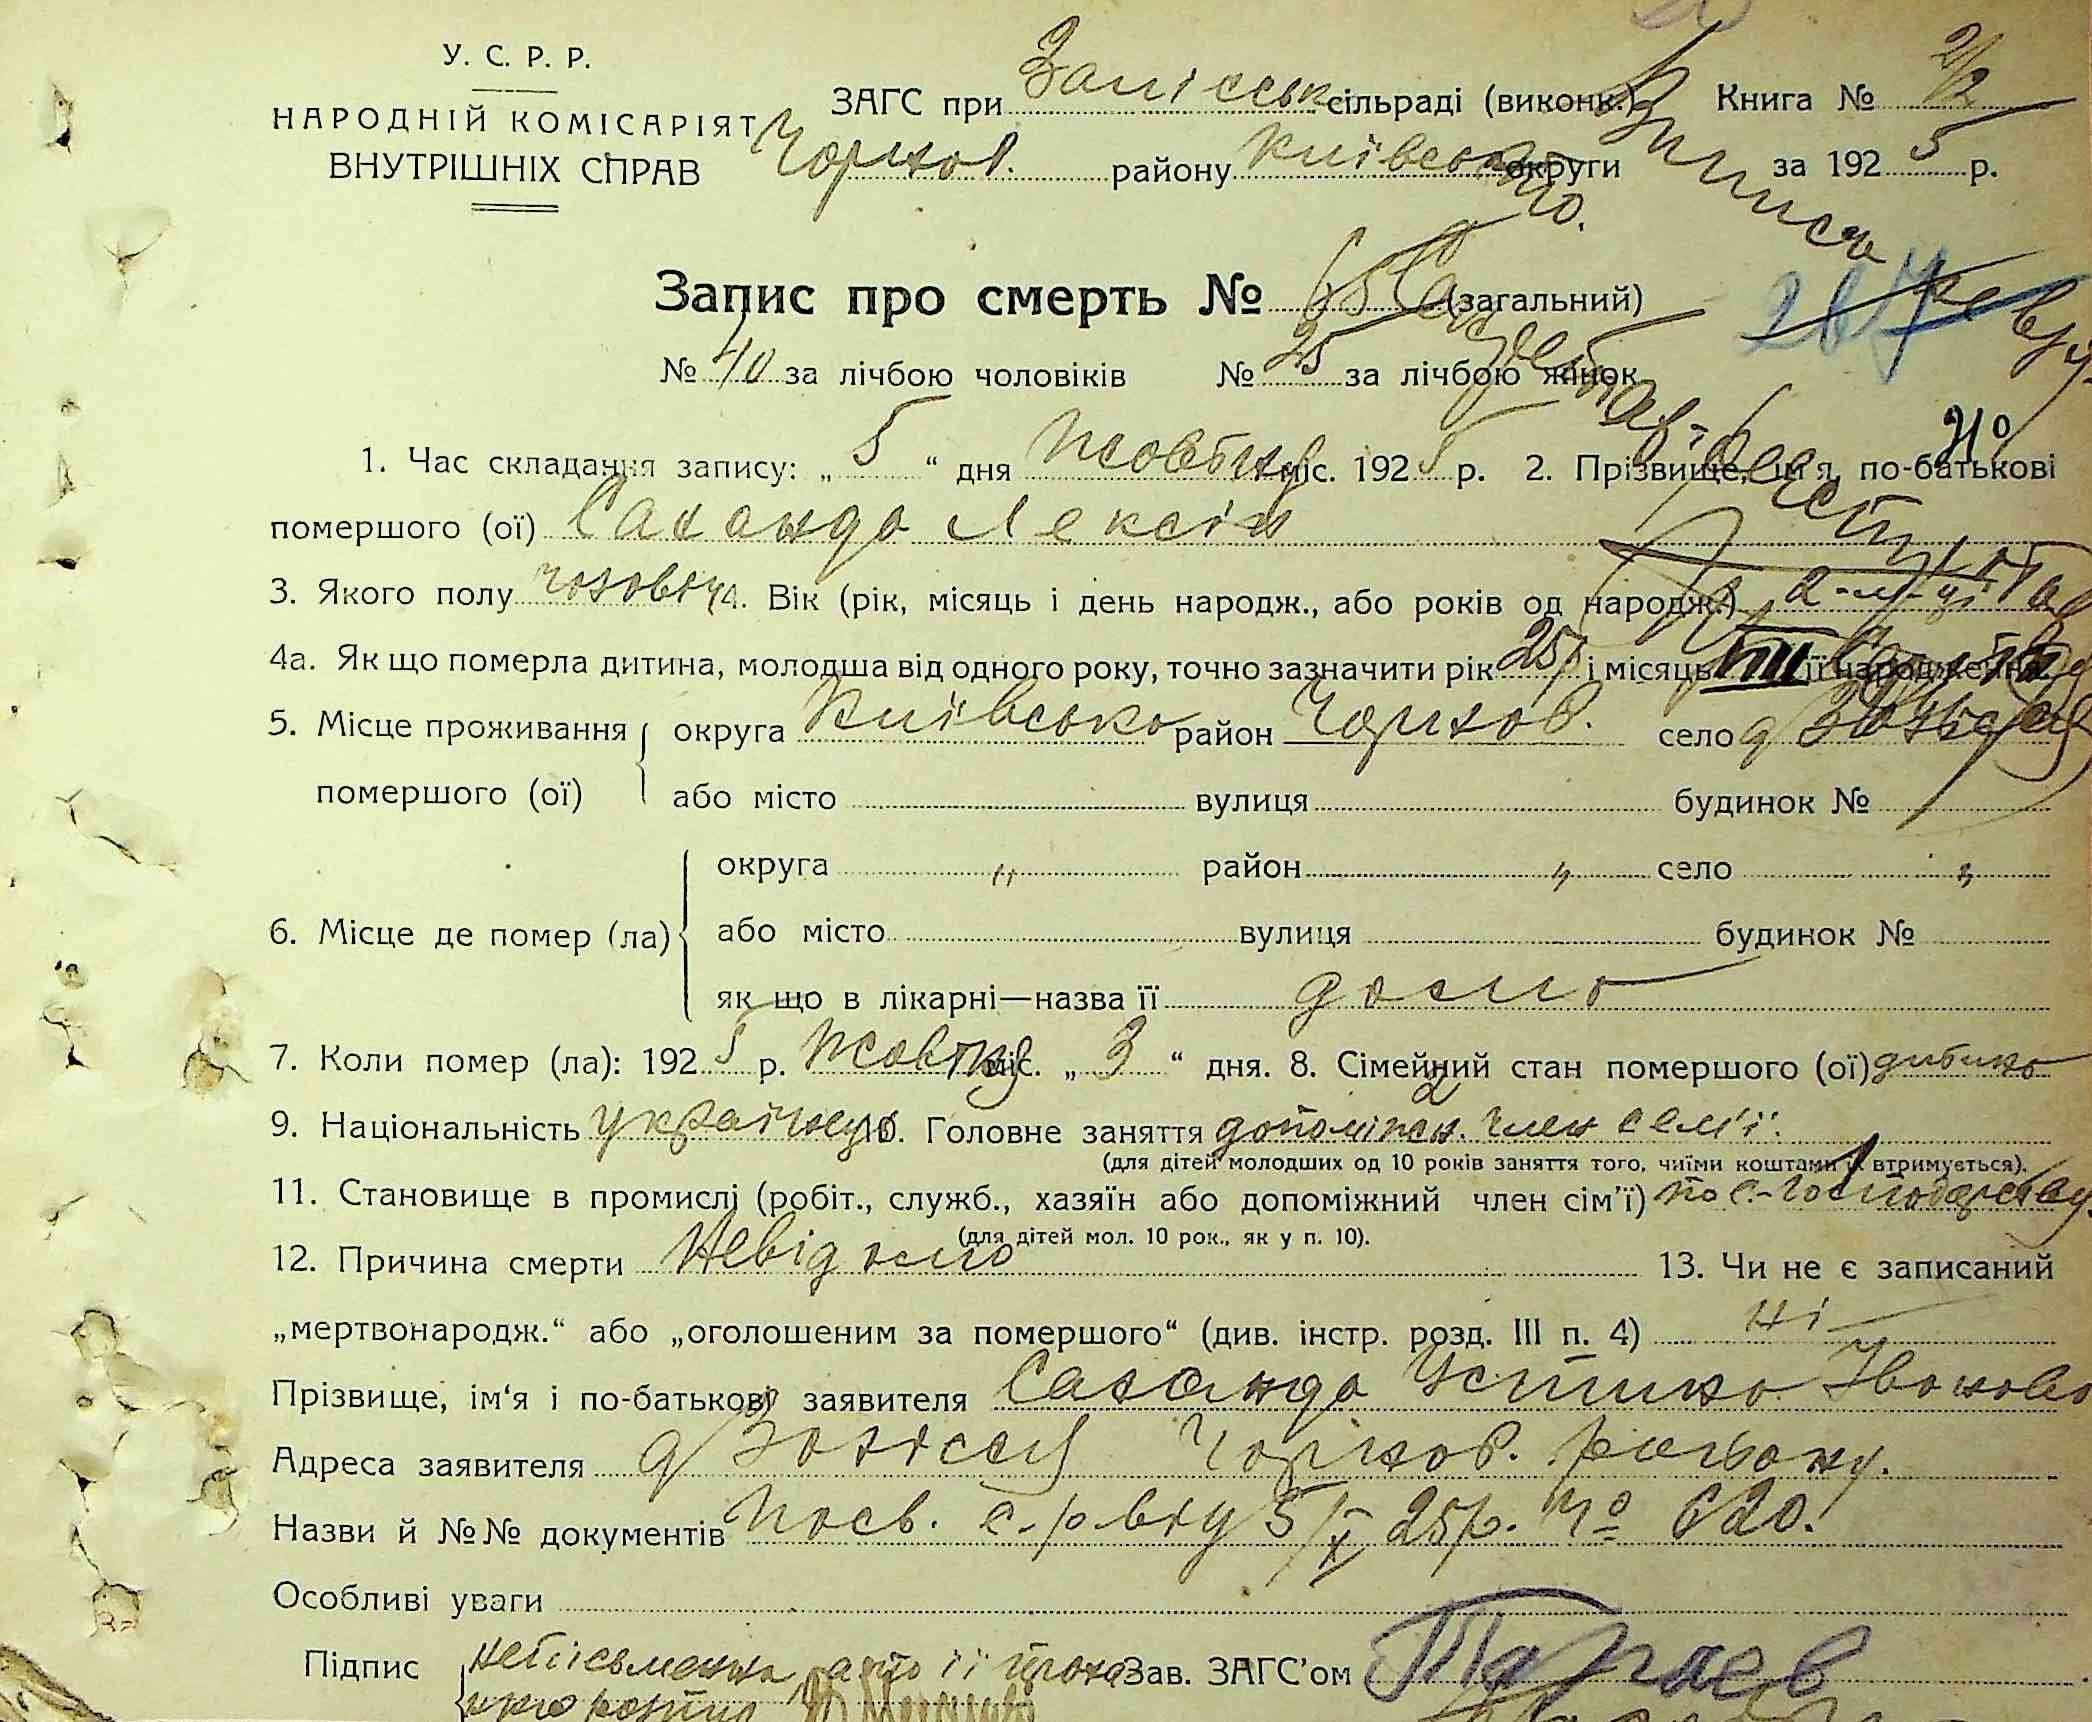 У. С. Р. Р.
НАРОДНІЙ КОМІСАРІЯТ
ВНУТРІШНІХ СПРАВ
ЗАГС при Заліськ сільраді (виконк.) Книга № 2/2
Чорноб. району Київсько округи за 1925 р.
Запис про смерть № 65 (загальний)
267
№ 40 за лічбою чоловіків № 25 за лічбою жінок
1. Час складання запису: „ 5 “ дня жовтня міс. 1925 р. 2. Прізвище, ім'я, по-батькові
помершого (ої) Саханда Лексій
3. Якого полу чоловіч 4. Вік (рік, місяць і день народж., або років од народж.) 2-м-ці
4а. Як що померла дитина, молодша від одного року, точно зазначити рік 25 і місяць VIII її народження
5. Місце проживання помершого (ої) округа Київсько район Чорноб. село
або місто вулиця будинок №
6. Місце де помер (ла) округа „ район „ село „
або місто вулиця будинок №
як що в лікарні—назва її дома
7. Коли помер (ла): 1925 р. жовтня міс. „ 3 “ дня. 8. Сімейний стан помершого (ої) дитина
9. Національність українець 10. Головне заняття допоміжн. член сем'ї.
(для дітей молодших од 10 років заняття того, чиїми коштами їх втримується).
11. Становище в промислі (робіт., служб., хазяїн або допоміжний член сім'ї) по с.-господарству.
(для дітей мол. 10 рок., як у п. 10).
12. Причина смерти Невідомо 13. Чи не є записаний
„мертвонародж.“ або „оголошеним за помершого“ (див. інстр. розд. III п. 4) ні
Прізвище, ім'я і по-батькові заявителя Саханда Устина Іванова
Адреса заявителя д Залісся Чорноб. району.
Назви й №№ документів Посв. с/р від 5/X 25р. № 620.
Особливі уваги
Підпис неписьменна, а по її проха Зав. ЗАГС'ом